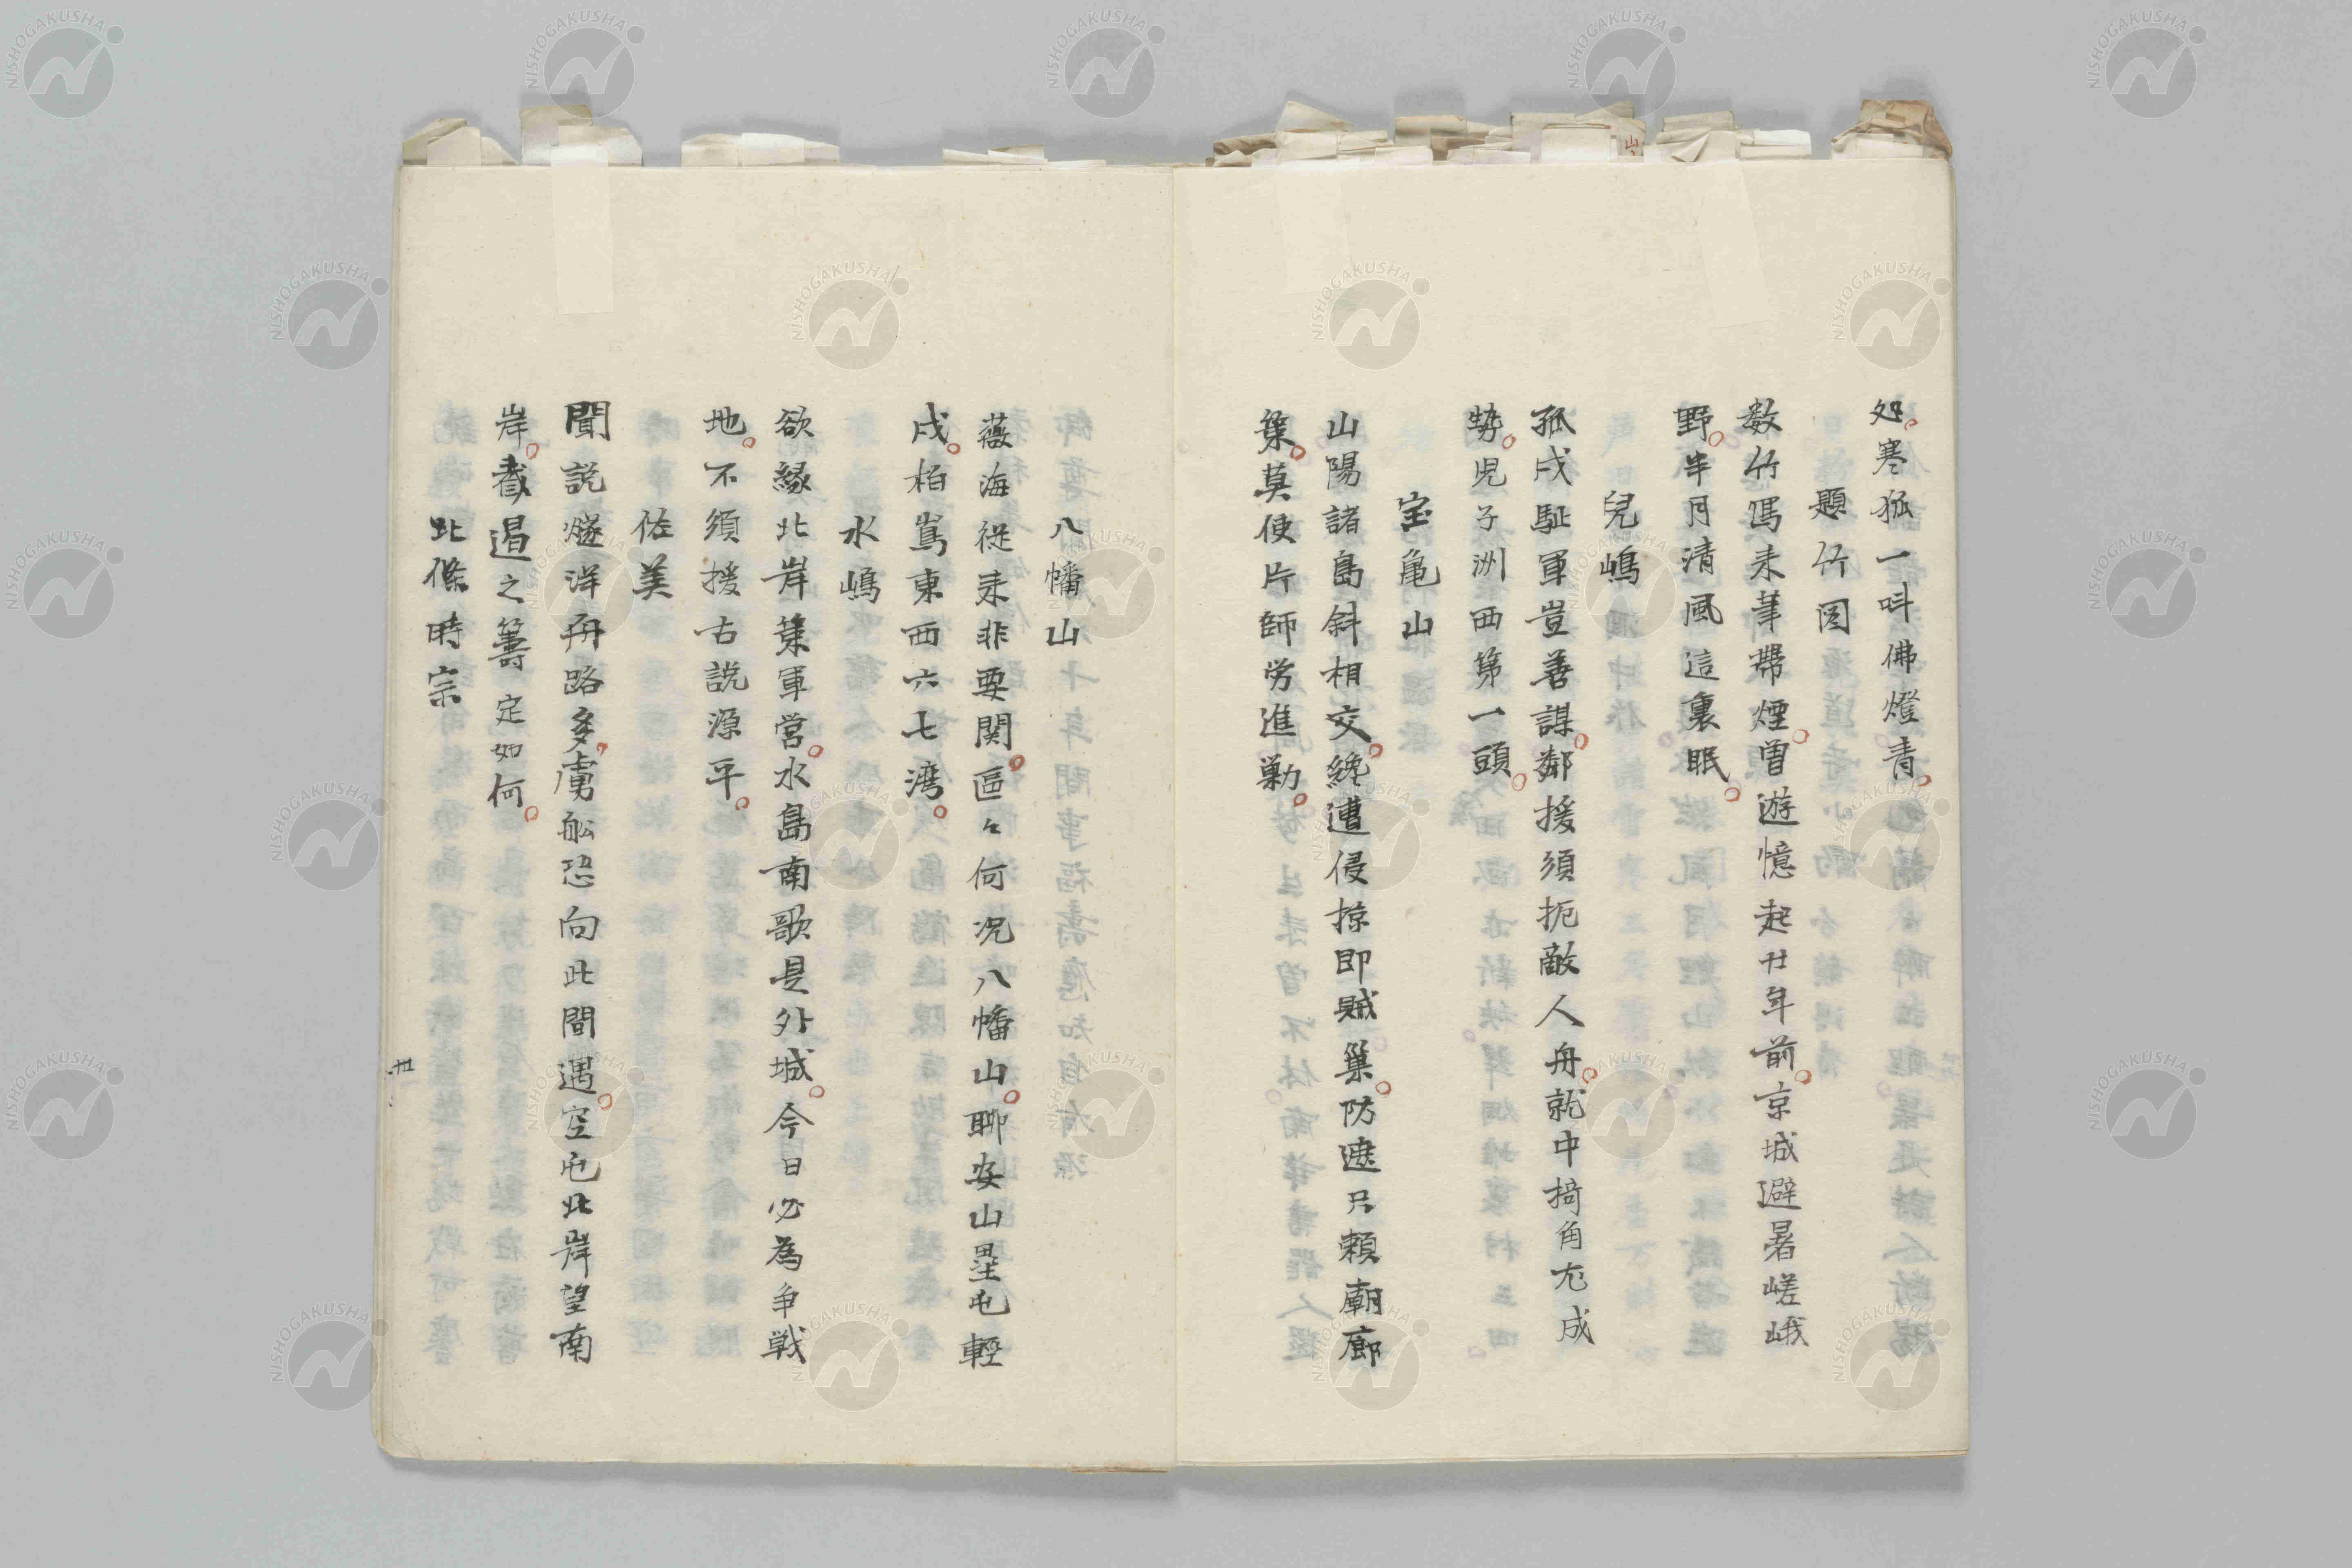 処。寒狐一呌佛燈青。
題竹図
数竹写来筆帯煙。曽遊憶起廿年前。京城避暑嵯峨
野。半月清風這裏眠。
兒嶋
孤戍駐軍豈善謀。鄰援須扼敵人舟。就中掎角尤成
勢。児子洲西第一頭。
宝亀山
山陽諸島斜相交。纔遭侵掠即賊巣。防遮只頼廟廊
策。莫使片師労進勦。
八幡山
薇海従来非要関。區々何况八幡山。聊安山塁屯輕
戍。柏嶌東西六七湾。
水嶋
欲縁北岸築軍営。水島南歌是外城。今日必為争戦
地。不須援古説源平。
佐美
聞説燧洋舟路多。虜舩恐向此間過。空屯北岸望南
岸。截遏之籌定如何。
北條時宗
廿
山
NISHOGAKUSHA